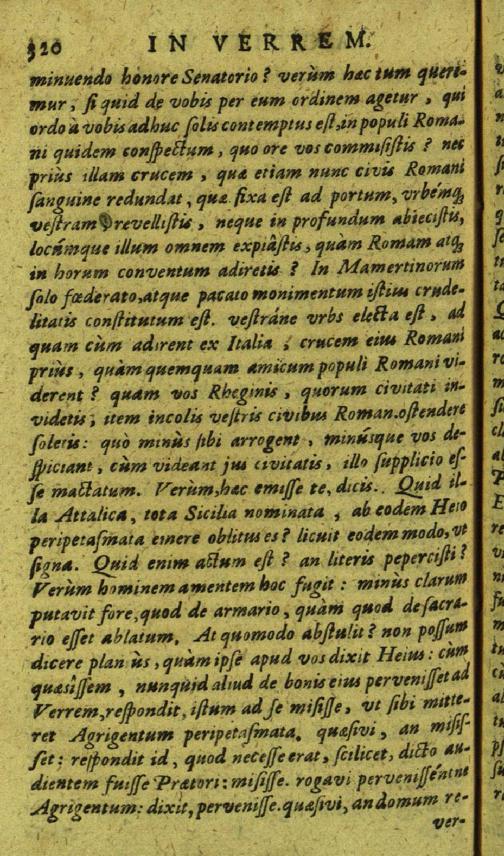 320 IN VERREM.
minuendo honore Senatorio? verùm hæc tum queri-
mur, ſi quid de vobis per eum ordinem agetur, qui
ordo à vobis adhuc ſolis contemptus eſt, in populi Roma-
ni quidem conſpectum, quo ore vos commiſiſtis? nec
priùs illam crucem, quæ etiam nunc civis Romani
ſanguine redundat, quæ fixa eſt ad portum, vrbémq;
veſtram revelliſtis, neque in profundum abieciſtis,
locúmque illum omnem expiâſtis, quàm Romam atq;
in horum conventum adiretis? In Mamertinorum
ſolo fœderato, atque pacato monimentum iſtius crude-
litatis conſtitutum eſt. veſtráne vrbs electa eſt, ad
quam cùm adirent ex Italia, crucem eius Romani
priùs, quàm quemquam amicum populi Romani vi-
derent? quam vos Rheginis, quorum civitati in-
videtis, item incolis veſtris civibus Roman. oſtendere
ſoletis: quò minùs ſibi arrogent, minúsque vos de-
ſpiciant, cùm videant jus civitatis, illo ſupplicio eſ-
ſe mactatum. Verùm, hæc emiſſe te, dicis. Quid il-
la Attalica, tota Sicilia nominata, ab eodem Heio
peripetaſmata emere oblitus es? licuit eodem modo, vt
ſigna. Quid enim actum eſt? an literis peperciſti?
Verùm hominem amentem hoc fugit: minùs clarum
putavit fore, quod de armario, quàm quod de ſacra-
rio eſſet ablatum. At quomodo abſtulit? non poſſum
dicere planiùs, quàm ipſe apud vos dixit Heius: cùm
quæsîſſem, nunquid aliud de bonis eius perveniſſet ad
Verrem, reſpondit, iſtum ad ſe miſiſſe, vt ſibi mitte-
ret Agrigentum peripetaſmata. quæſivi, an miſiſ-
ſet: reſpondit id, quod neceſſe erat, ſcilicet, dicto au-
dientem fuiſſe Prætori: miſiſſe. rogavi perveniſſéntne
Agrigentum: dixit, perveniſſe. quæſivi, an domum re-
ver-